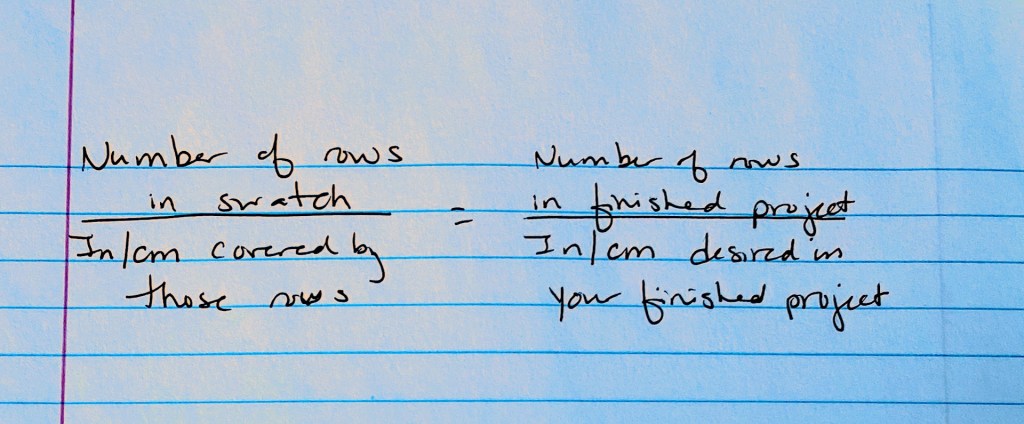 Number of rows
in swatch
In/cm covered by
those rows
=
Number of rows
in finished project
In/cm desired in
your finished project